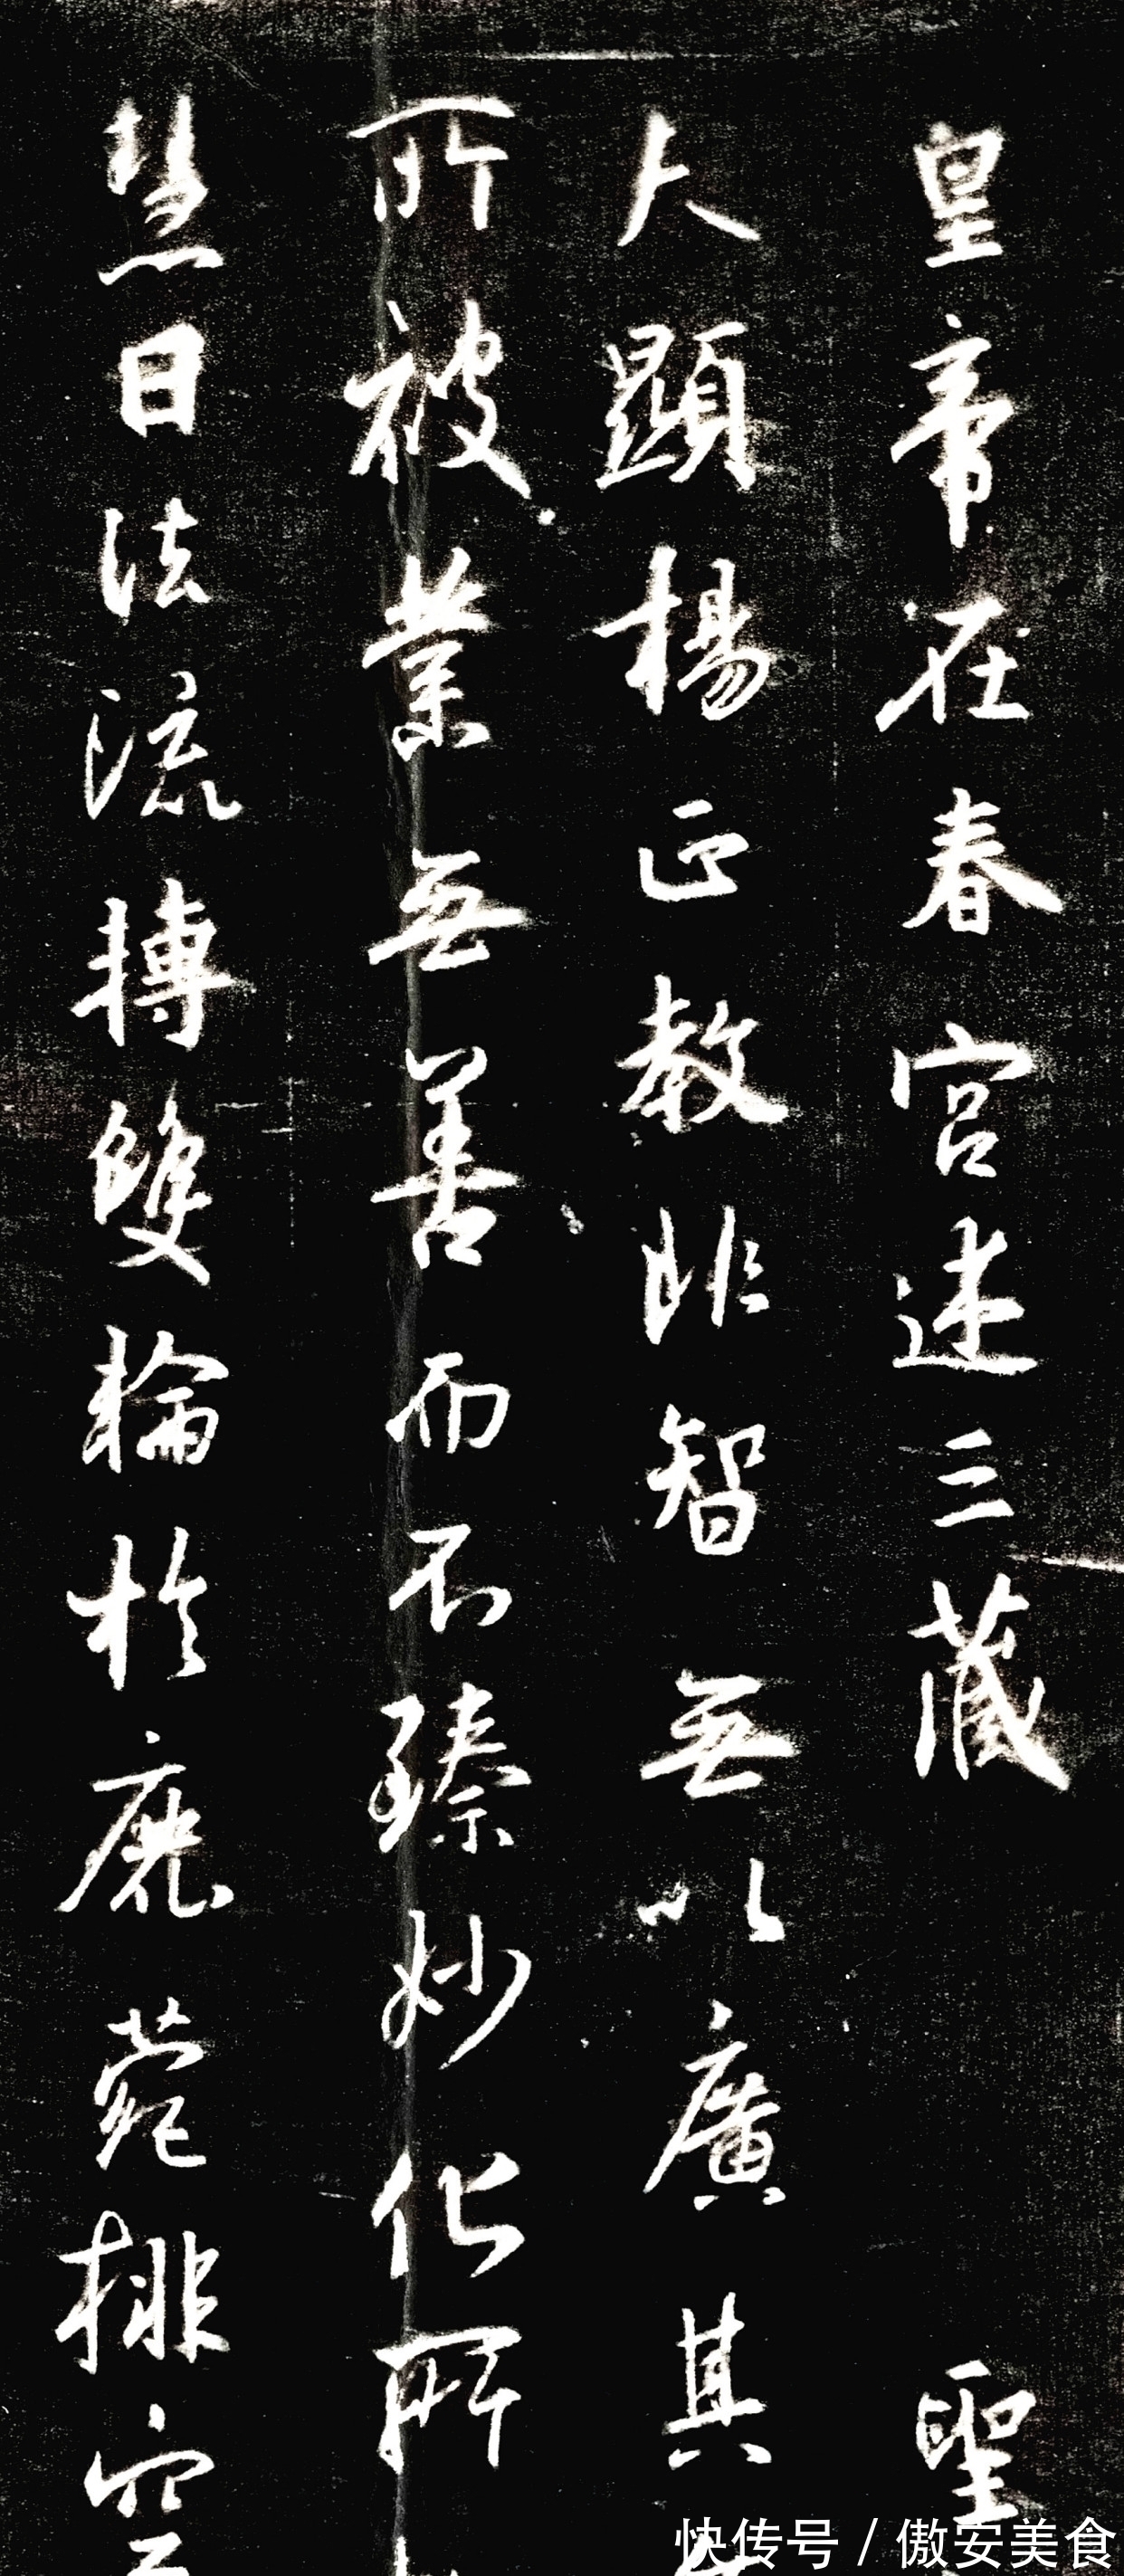 皇帝在春宮述三藏聖
夫顯揚正教非智無以廣其
所被業無善而不臻妙化所
慧日法流轉雙輪於鹿菀排空
快传号 / 傲安美食